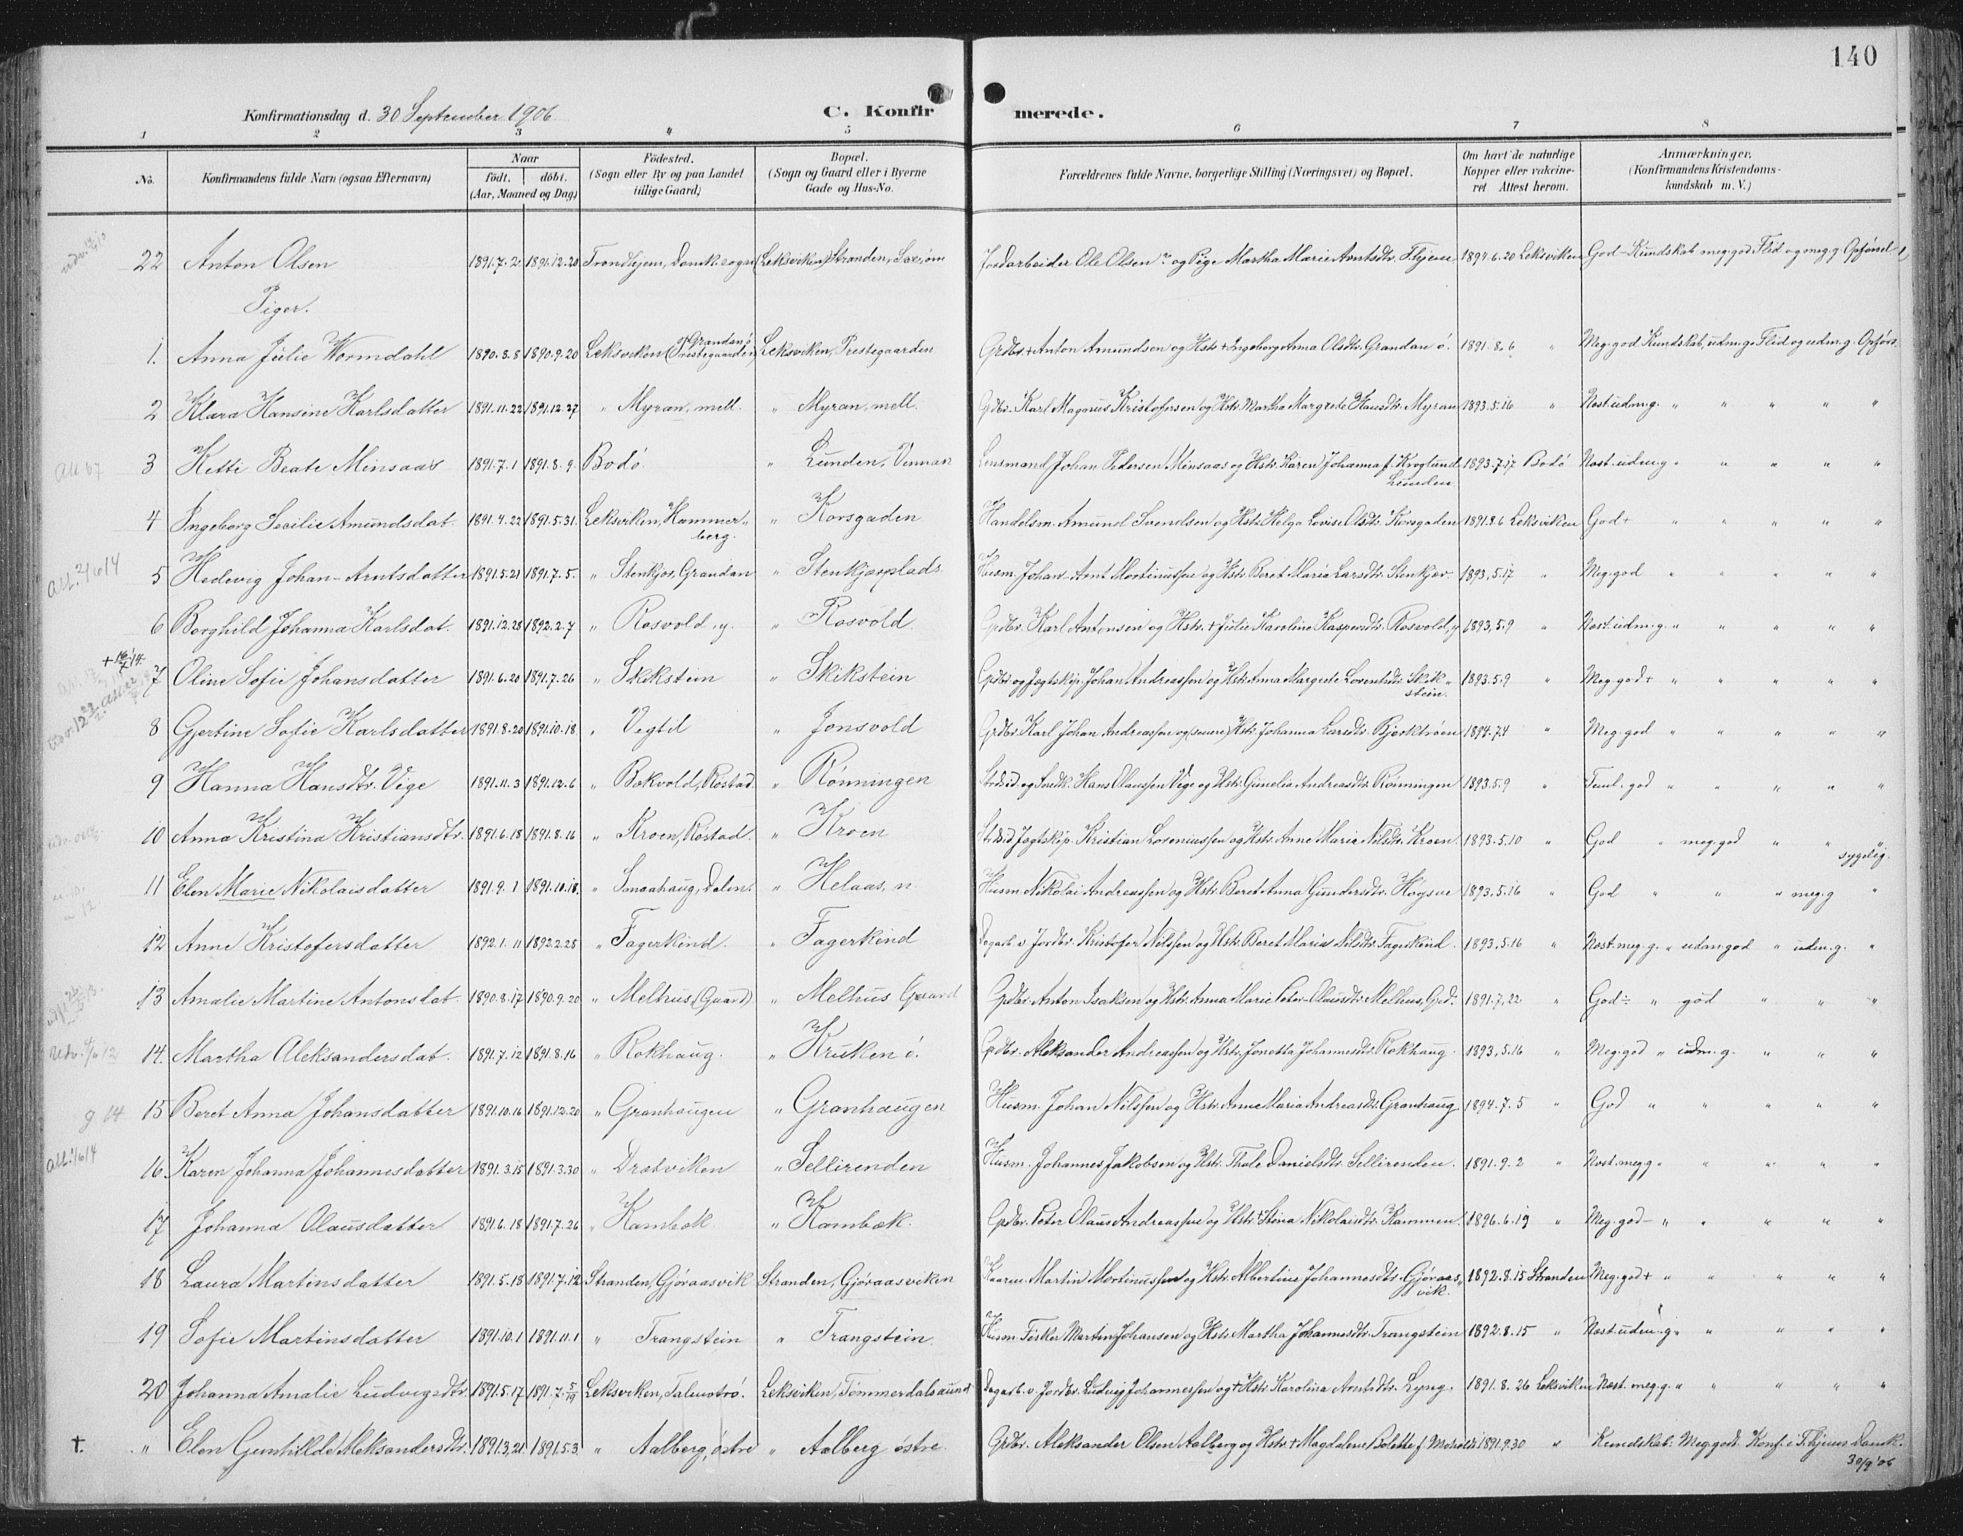 140
Konfirmationsdag d. 30 September 1906
C. Konfirmerede.
1 2 3 4 5 6 7 8
No. Konfirmandens fulde Navn (ogsaa Efternavn) Naar födt. döbt. (Aar, Maaned og Dag) Födested. (Sogn eller By og paa Landet tillige Gaard) Bopæl. (Sogn og Gaard eller i Byerne Gade og Hus-No. Forældrenes fulde Navne, borgerlige Stilling (Næringsvei) og Bopæl. Om havt de naturlige Kopper eller vakcineret Attest herom. Anmærkninger. (Konfirmandens Kristendomskundskab m. V.)
22 Anton Olsen 1891.7.2 1891.12.20 Trondhjem, Domk.sogn Leksviken/Stranden, Jordarbeider Ole Olsen og Pige Martha Marie Arntsdtr. Thjem 1897.6.20 Leksviken God - Kundskab meg.god Flid og meg.g. Opførsel
Piger.
1. Anna Julie Wormdahl 1890.8.8 1890.9.20 Leksviken (Grandan ö Prestegaarden) Leksviken, Prestegaarden Grdbr. + Anton Amundsen og Hstr + Ingeborg Anna Olsdtr. Grandan ö. 1891.8.6 " Meg.god Kundskab, udm.g. Flid og udm.g. Opførs.
2 Klara Hansine Karlsdatter 1891.11.22 1891.12.27 " Myran, mell. " Myran, mell. Gdbr. Karl Magnus Kristofersen og Hstr. Martha Margrete Hansdtr. Myran 1893.5.16 " Næst.udm.g. " " " " "
3 Ketti Beate Minsaas 1891.7.1 1891.8.9 Bodö. " Lunden, Vennan Lensmand Johan Pedersen Minsaas og Hstr. Karen Johanna f. Kroglund Lunden 1893.7.17 Bodö Næst.udm.g " " " " "
4 Ingeborg Secilie Amundsdat. 1891.4.22 1891.5.31. Leksviken, Hammerberg. " Korsgaden Handelsm. Amund Svendsen og Hstr. Helga Lovise Olsdtr. Korsgaden 1891.8.6 Leksviken God + " " " " "
5 Hedevig Johan-Arntsdatter 1891.5.21 1891.7.5. " Stenkjær, Grandan " Stenkjærplads Husm. Johan Arnt Mortinussen og Hstr. Beret Maria Larsdtr. Stenkjær. 1893.5.17 " Meg.god " " " " "
6 Borghild Johanna Karlsdat. 1891.12.28 1892.2.7 " Rosvold, y. " Rosvold Gdbr. Karl Antonsen og Hstr. + Julie Karoline Kaspersdtr. Rosvold, y 1893.5.9 " Næst.udm.g. " " " " "
7 Oline Sofie Johansdatter 1891.6.20 1891.7.26 " Skikstein " Skikstein Gdbr. og Jægtskip. Johan Andreassen og Hstr. Anna Margrete Lorentsdtr. Skikstein. 1893.5.9 " Meg.god + " " " " "
8 Gjertine Sofie Karlsdatter 1891.8.20 1891.10.18 " Vegtil " Jonsvold Grdbr. Karl Johan Andreassen og (senere) Hstr. Johanna Larsdtr. Bjørktrøen 1894.7.4 " Meg.god " " " " "
9 Hanna Hansdtr. Vige 1891.11.3 1891.12.6 " Bækvold, Röstad " Rönningen Hans Olaussen Vige og Hstr. Gunelia Andreasdtr. Rönningen 1893.5.9 " Teml. god " " " " "
10 Anna Kristina Kristiansdtr. 1891.6.18 1891.8.16 " Kroen, Röstad. " Kroen Jægtskip. Kristian Loreniussen og Hstr. Anne Maria Nilsdtr. Kroen. 1893.5.10 " God " meg.god " " " sygelig.
11 Elen Marie Nikolaisdatter 1891.9.1 1891.10.18. " Smaahaug, Dalen. " Helaas, n. Husm. Nikolai Andreassen og Hstr. Beret Anna Gundersdtr. Hogsve 1893.5.16 " God " " " meg.g "
12 Anne Kristofersdatter 1892.1.11 1892.2.28 " Fagerkind. " Fagerkind Dagarb. v. Jordbr. Kristofer Nilssen og Hstr. Beret Marias Nilsdtr. Fagerkind. 1893.5.16 " Næst.meg.g. " udm.god " udm.g. "
13 Amalie Martine Antonsdat. 1890.8.17 1890.9.20 " Melhus (Gaard) " Melhus Gaard Gdbr. Anton Isaksen og Hstr. Anna Marie Peter-Olausdtr. Melhus, Grd. 1891.7.22 " God ÷ " god " " "
14. Martha Aleksandersdat. 1891.7.12 1891.8.16 " Rokhaug. " Kruken ö. Gdbr. Aleksander Andreassen og Hstr. Jonetta Johannesdtr. Rokhaug. 1893.5.16 " Meg.god " udm.g. " " "
15 Beret Anna Johansdatter 1891.10.16 1891.12.20 " Granhaugen " Granhaugen Husm. Johan Nilssen og Hstr. Anne Maria Andreasdtr. Granhaug 1894.7.5 " God " " " " "
16. Karen Johanna Johannesdatter 1891.3.15 1891.3.30 " Drætviken " Sellirenden Husm. Johannes Jakobsen og Hstr. Thale Danielsdtr. Sellirenden. 1891.9.2 " Næst.meg.g " " " " "
17 Johanna Olausdatter 1891.6.18 1891.7.26 " Kambæk " Kambæk. Gdbr. Peter Olaus Andreassen og Hstr. + Stina Nikolaisdtr. Kammen. 1896.6.19 " Meg.god - " " " " "
18 Laura Martinsdatter 1891.5.18 1891.7.12 Stranden, Gjöraasvik Stranden, Gjöraasviken Martin Mortinussen og Hstr. Albertine Johannesdtr. Gjöraasvik. 1892.8.15 Stranden Meg.god + " " " " "
19 Sofie Martinsdatter 1891.10.1 1891.11.1 " Trangstein " Trangstein. Husm. Fisker Martin Johansen og Hstr. Martha Johannesdtr. Trangstein 1892.8.15 " Næst.udm.g " " " " "
20 Johanna Amalie Ludvigsdtr. 1891.5.17 1891.7.5/19 Leksviken, Leksviken, Tömmerdalsaune Dagarb. v. Jordbr. Ludvig Johannessen og + Hstr. Karolina Arntsdtr. Lyng. 1891.8.26 Leksviken Næst. meg.g. " " " " "
†. " Elen Gunhilde Aleksandersdtr. 1891.3.21 1891.5.3 " Aalberg, östre " Aalberg östre. Grdbr. Aleksander Olsen Aalberg og Hstr + Magdalena Bolette f. 1891.9.30 " Kundskab: Meg.godt. Konf. i T.hjems Domk. 30/9 '06